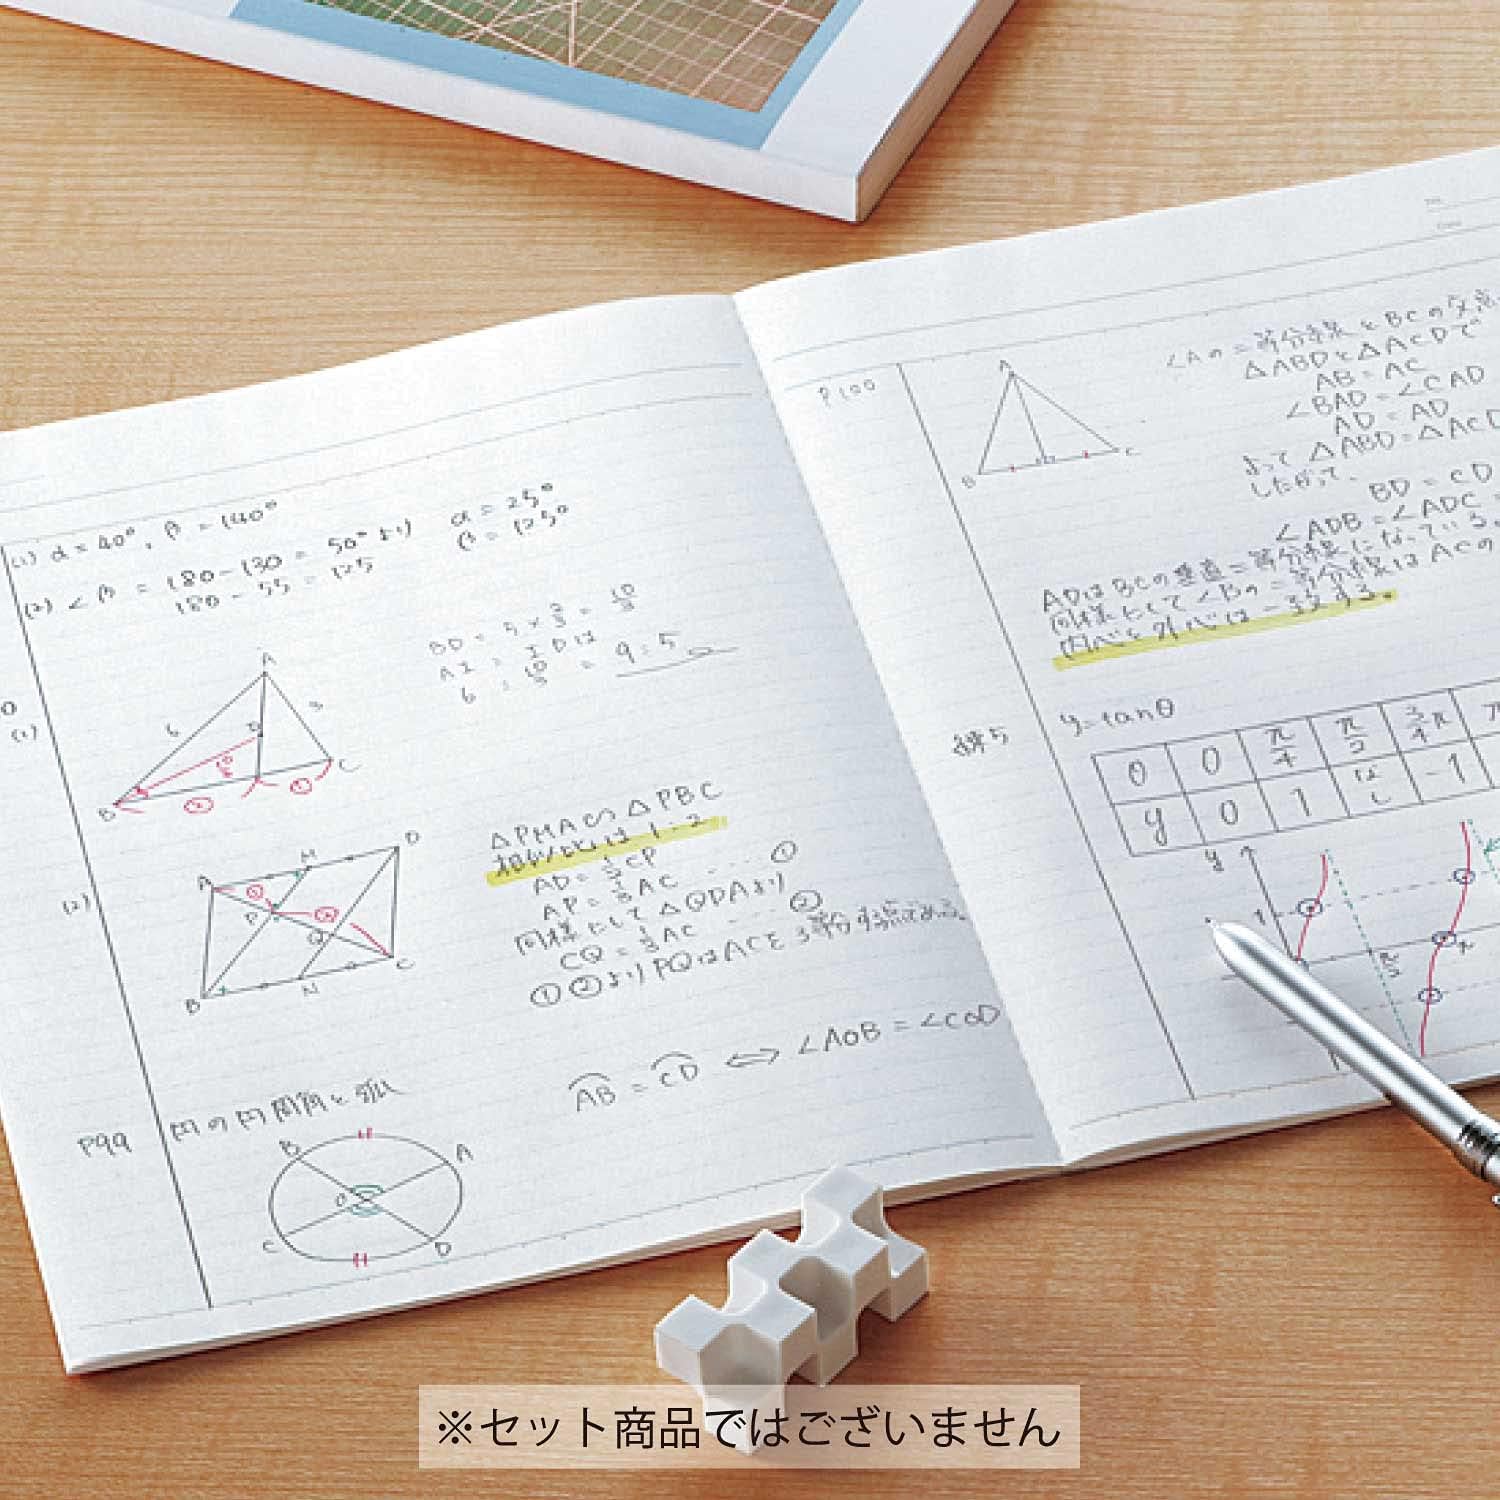 (1) α = 40°, β = 140°
(2) ∠β = 180 - 130 = 50° より
180 - 55 = 125
α = 25°
β = 125°
(1)
A
6
3
D
B
C
②
①
BD = 5 × 2/3 = 10/3
AI : IDは
6 : 10/3 = 9:5
(2)
A
M
D
P
Q
B
N
C
①
②
△PMA∽△PBC
相似比は1:2
AP = 1/3 AC … ①
同様にして△QDAより
CQ = 1/3 AC … ②
①②よりPQはACを3等分する点である。
P99
円の円周角と弧
B
A
O
C
D
AB = CD ⇔ ∠AOB = ∠COD
P100
A
B
D
C
∠Aの二等分線とBCの交点
△ABDと△ACDで
AB = AC
∠BAD = ∠CAD
AD = AD
よって△ABD=△ACD
したがって、
BD = CD
∠ADB = ∠ADC =
ADはBCの垂直二等分線になっている。
同様にして∠Bの二等分線はACの
内心と外心は一致する。
y = tanθ
θ 0 π/4 π/2 3/4π π
y 0 1 -1
y
1
π/2
π
※セット商品ではございません